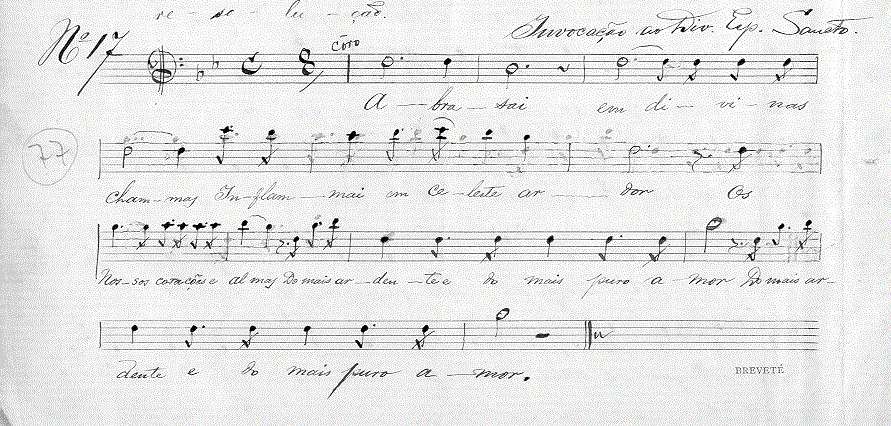 re-se-lu-ção.
Nº 17 Côro Invocação ao Div. Esp. Sancto.
A-bra-sai em di-vi-nas
77
cham-mas In-flam-mai em Ce-leste ar-dor Os
Nos-sos corações e almas Do mais ar-den-te e do mais puro a-mor Do mais ar-
dente e do mais puro a-mor.
BREVETÉ